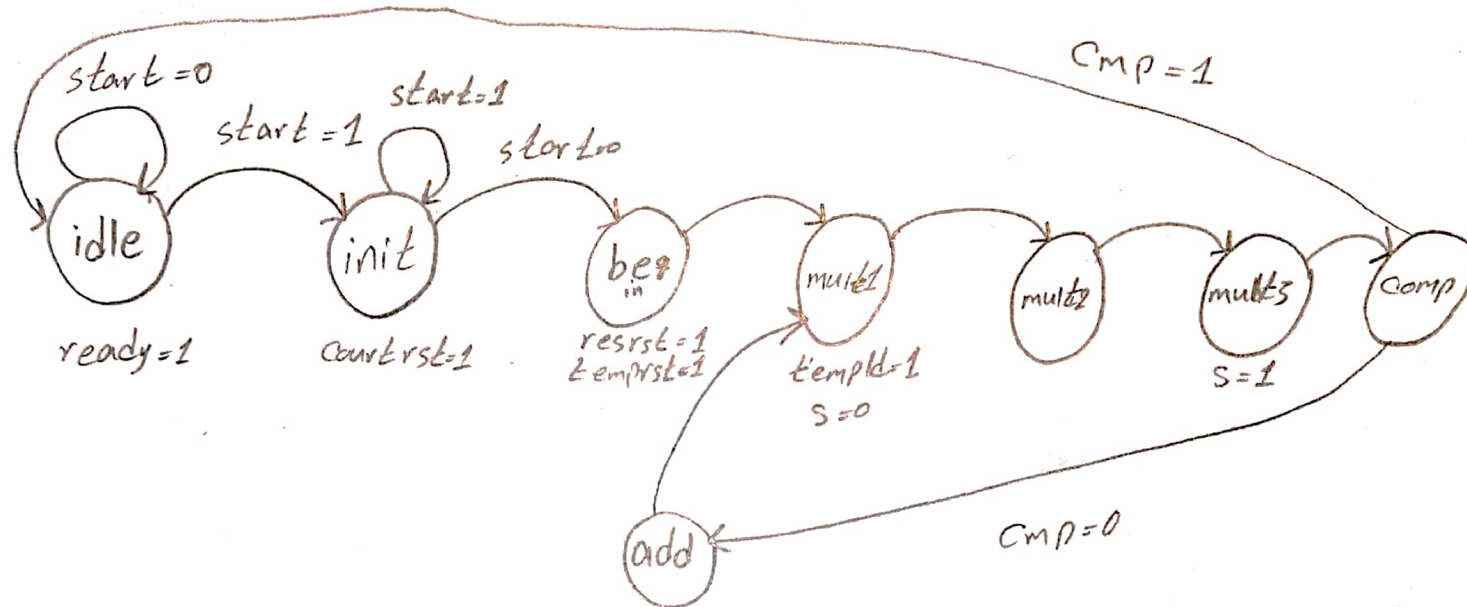 Cmp=1
start=0
start=1
start=1
start=0
idle
init
beg
in
mult1
mult2
mult3
comp
ready=1
countrst=1
resrst=1
temprst=1
templd=1
s=0
s=1
add
Cmp=0